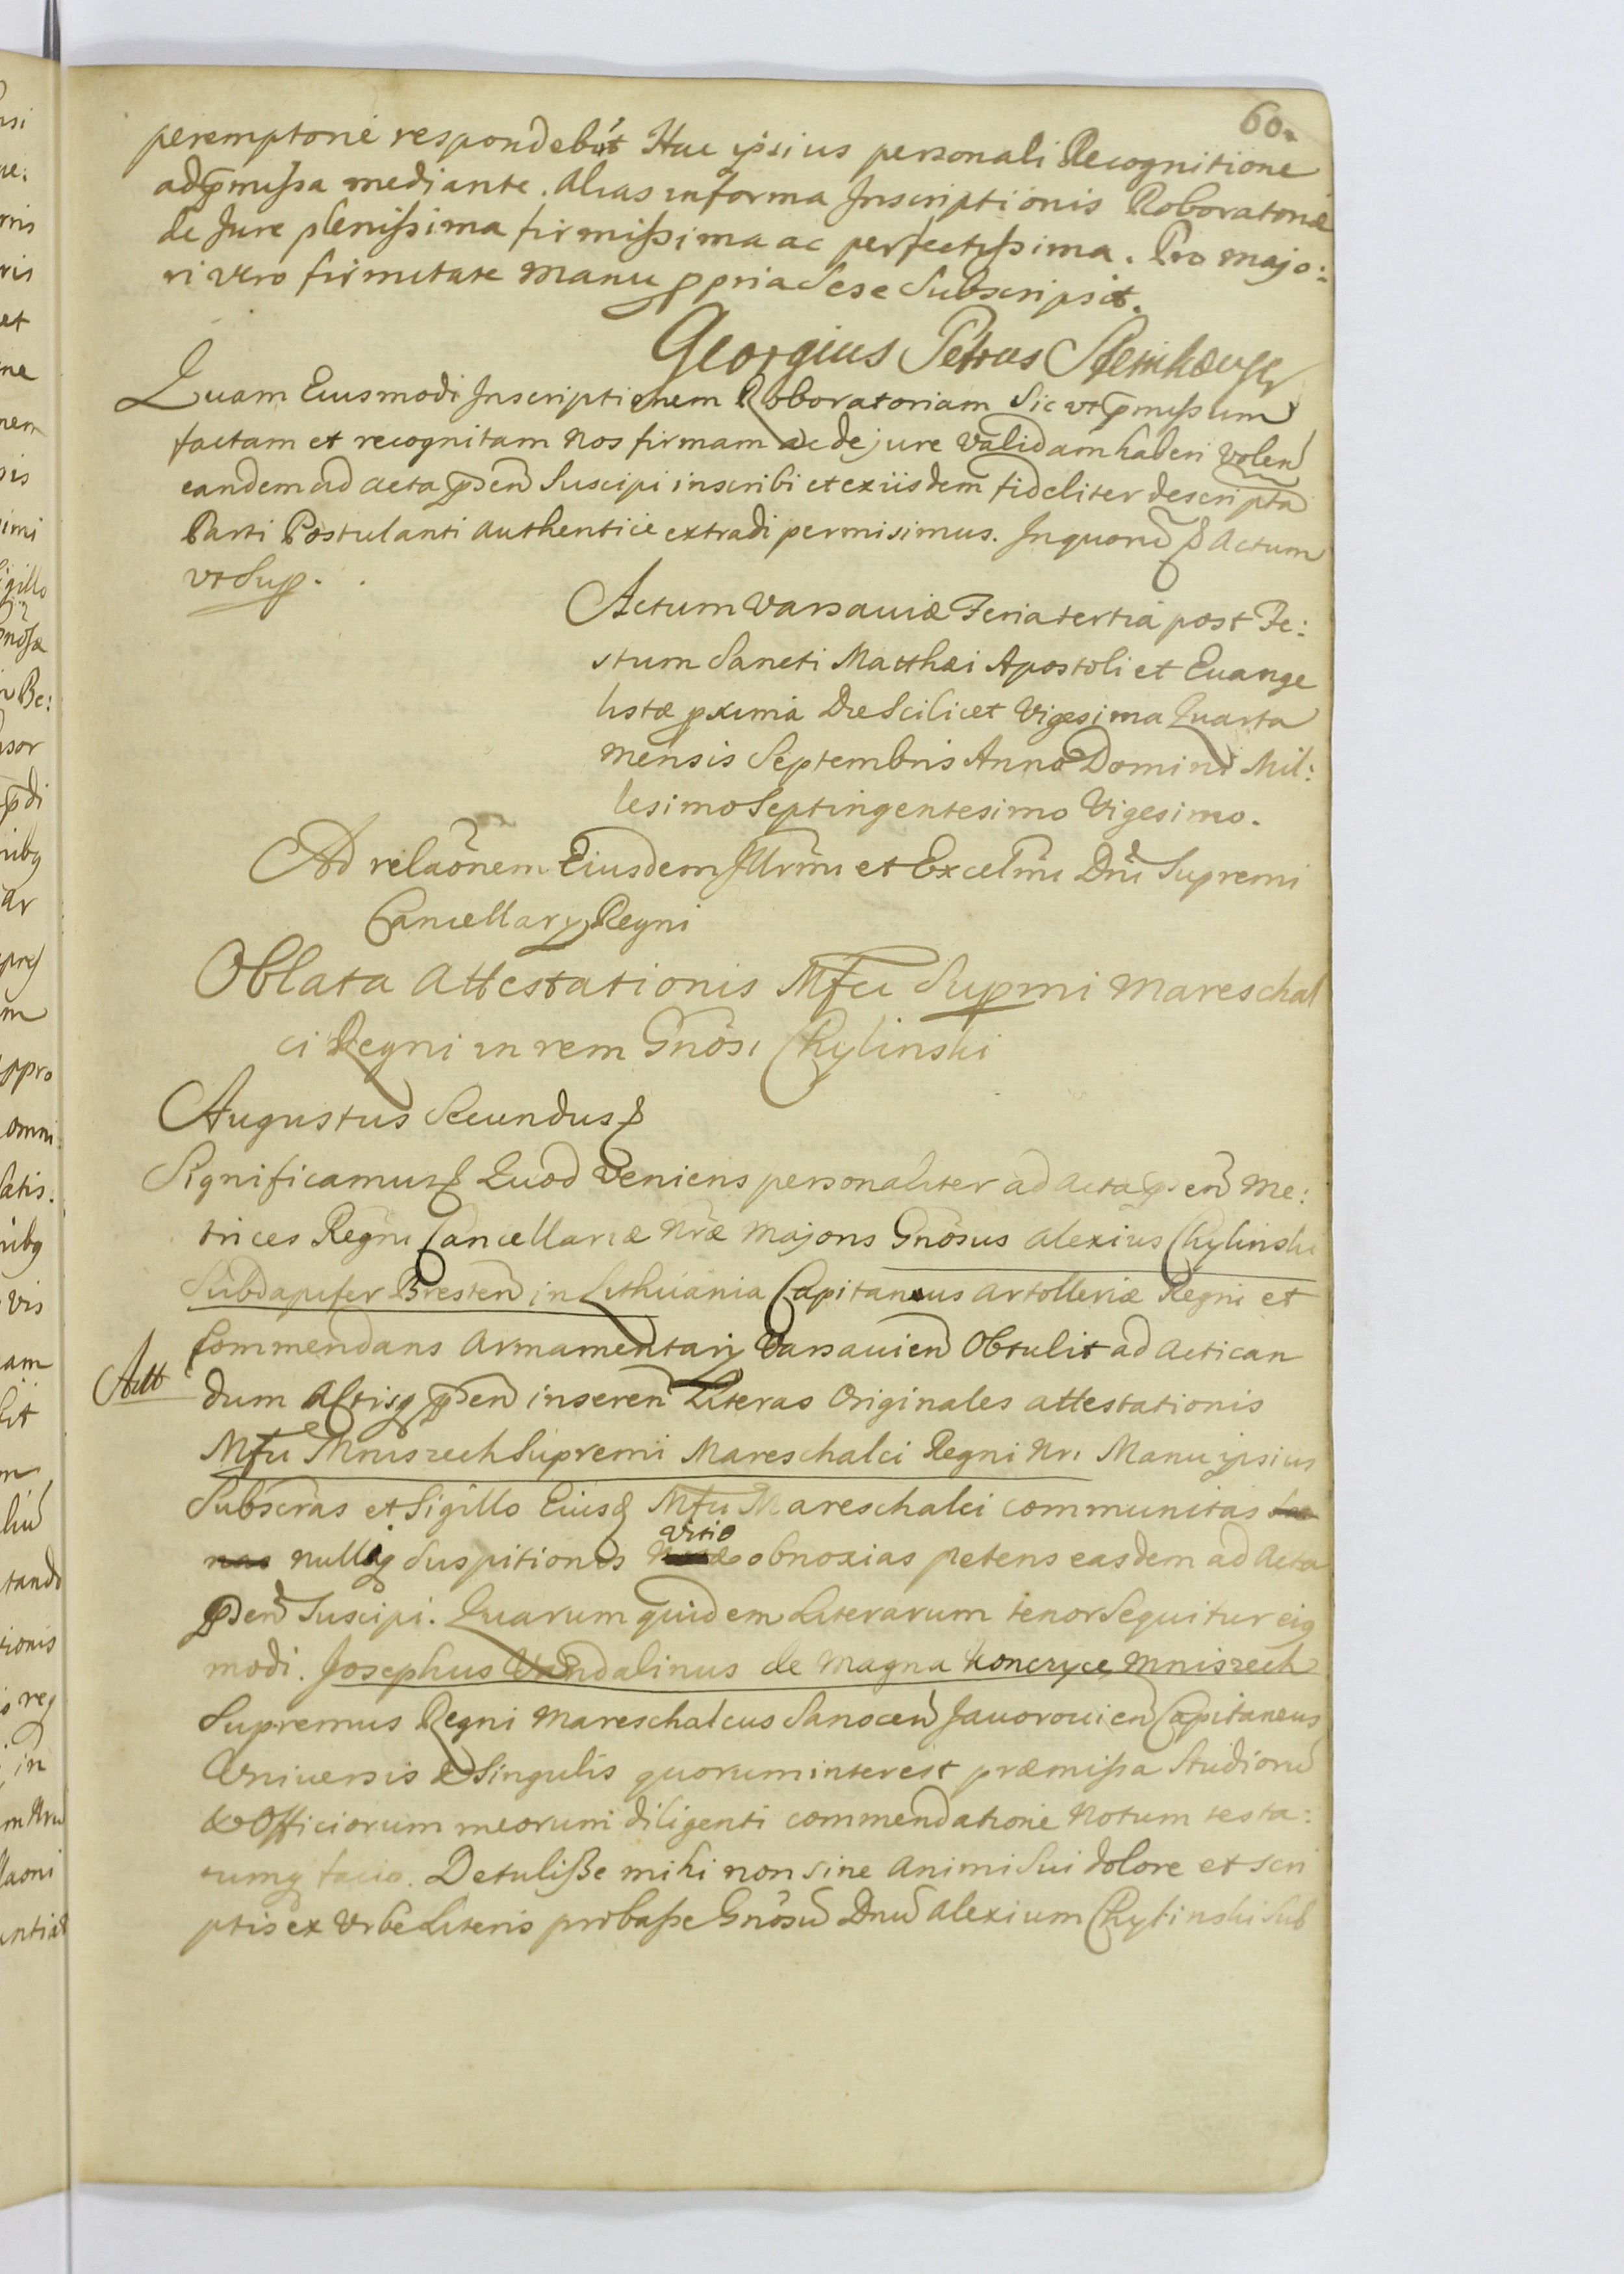 60.
peremptorie respondebit Hac ipsius personali Recognitione
ad p̄missa mediante. Alias in forma Inscriptionis Roboratoriæ
de Jure plenissima firmissima ac perfectissima. Pro majo:
ri vero firmitate manu ppria Sese Subscripsit.
Georgius Petrus Steinhauser
Quam Eiusmodi Inscriptionem Roboratoriam Sic vt p̄missum
factam et recognitam Nos firmam ac de jure validam haberi volen̄
eandem ad acta p̄sen̄ Suscipi inscribi et ex iisdem fideliter descripta
Parti Postulanti authentice extradi permisimus. In quorū & Actum
vt Sup.
Actum Varsaviæ Feria tertia post Fe:
stum Sancti Matthæi Apostoli et Euange
listæ pxima Die Scilicet Vigesima Quarta
mensis Septembris Anno Domini Mil:
lesimo Septingentesimo Vigesimo.
Ad relaōnem Eiusdem Illrmi et Excelmi Dni Supremi
Cancellary Regni
Oblata Attestationis Mfci Supmi Mareschal
ci Regni in rem Gnōsi Chylinski
Augustus Secundus &
Significamus & Quod Veniens personaliter ad acta p̄sen̄ Me:
trices Regni Cancellariæ Nræ Majoris Gnōsus Alexius Chylinski
Subdapifer Bresten̄ in Lithuania Capitaneus Artolleriæ Regni et
Commendans Armamentarij Varsavien̄ Obtulit ad actican
Att
dum Actisq p̄sen̄ inseren̄ Literas Originales attestationis
Mfci Mniszech Supremi Mareschalci Regni Nri Manu ipsius
Subscras et Sigillo Eiusd Mfci Mareschalci communitas
nulliq Suspitionis vitio obnoxias petens easdem ad Acta
p̄sen̄ Suscipi. Quarum quidem Literarum tenor Sequitur eiq
modi. Josephus Vandalinus de Magna Konczyce Mniszech
Supremus Regni Mareschalcus Sanocen̄ Javorovien̄ Capitaneus
Vniversis & Singulis quorum interest præmissa Studiorū
& Officiorum meorum diligenti commendatione Notum testa:
tumq facio. Detulisse mihi non sine animi Sui dolore et scri
ptis ex Vrbe Literis probasse Gnōsū Dnū Alexium Chylinski Sub